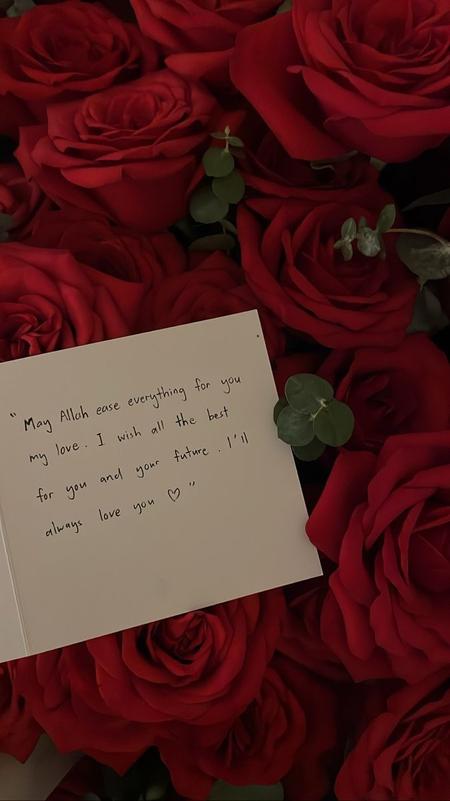 " May Allah ease everything for you
my love. I wish all the best
for you and your future. I'll
always love you ♡ "